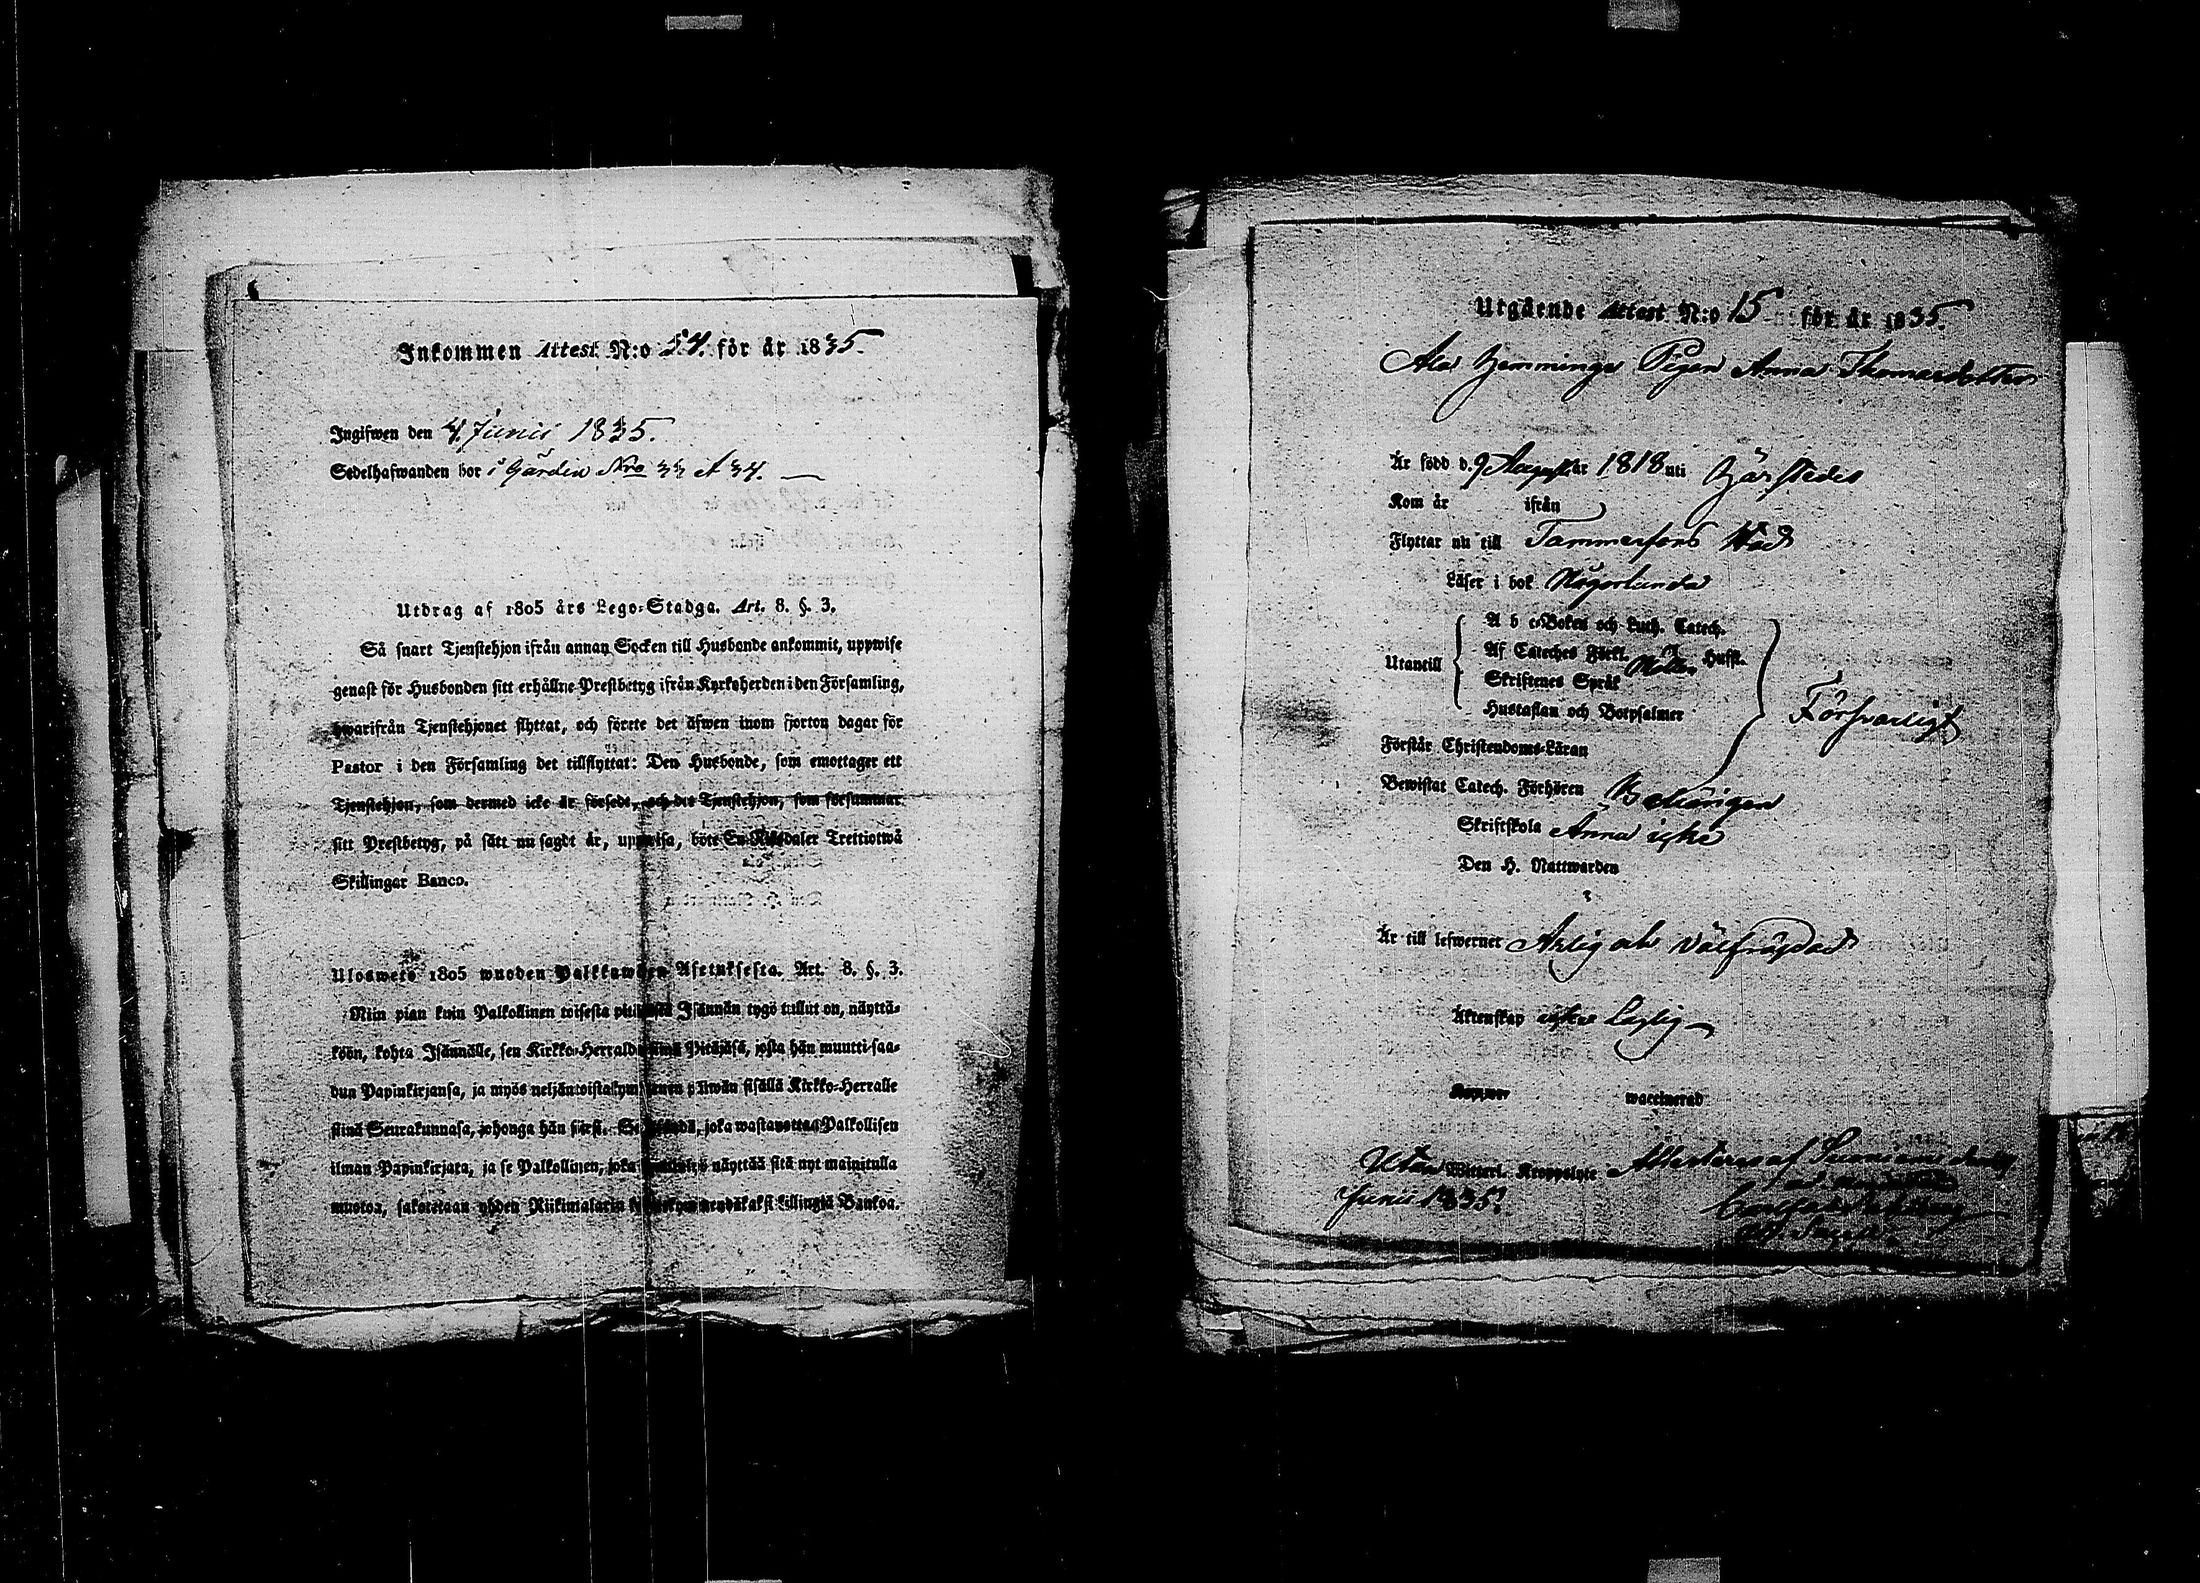 Inkommen Attest N:o 54. för år 1835.
Ingifwen den 4 Junii 1835.
Sedelhafwanden bor i Gården Nro 33 et 34.
Utdrag af 1805 års Lego-Stadga. Art. 8. §. 3.
Så snart Tjenstehjon ifrån annan Socken till Husbonde ankommit, uppwise
genast för Husbonden sitt erhållne Prestbetyg ifrån Kyrkoherden i den Församling,
hwarifrån Tjenstehjonet flyttat, och förete det äfwen inom fjorton dagar för
Pastor i den Församling det tillflyttat: Den Husbonde, som emottager ett
Tjenstehjon, som dermed icke är försedt, och det Tjenstehjon, som försummar
sitt Prestbetyg, på sätt nu sagdt är, uppwisa, böte En Riksdaler Trettiotwå
Skillingar Banco.
Uloswето 1805 wuoden Palkkawäen Asetuksesta. Art. 8. §. 3.
Niin pian kuin Palkollinen toisesta pitäjästä Isännän tygö tullut on, näyttä-
köön, kohta Isännälle, sen Kirkko-Herralda siinä Pitäjäsä, josta hän muutti saa-
dun Papinkirjansa, ja myös neljäntoistakymmenen päiwän sisällä Kirkko-Herralle
siinä Seurakunnasa, johonga hän siirsi. Se Isändä, joka wastaanottaa Palkollisen
ilman Papinkirjata, ja se Palkollinen, joka näyttää sitä nyt mainitulla
muotoa, sakotetaan yhden Riikintalarin kakskillingiä Bankoa.
Utgående Attest N:o 15 för år 1835.
Hemminge Pigan Anna Thomasdotter
Är född d. 9 August år 1818 uti
Kom år ifrån
Flyttar nu till Tammerfors Stad
Läser i bok Någorlunda
Utantill
A b c-Boken och Luth. Catech.
Af Cateches Förkl. Hufst.
Skriftenes Språk
Hustaflan och Botpsalmer
Försvarligt
Förstår Christendoms-Läran
Bewistat Catech. Förhören
Skriftskola Ännu icke
Den H. Nattwarden
Är till lefwernet Ärlig och välfräjdad
Äktenskap icke Laglig
vaccinerad
Utan Witterl. Kroppslyte Attesteras af
Junii 1835.